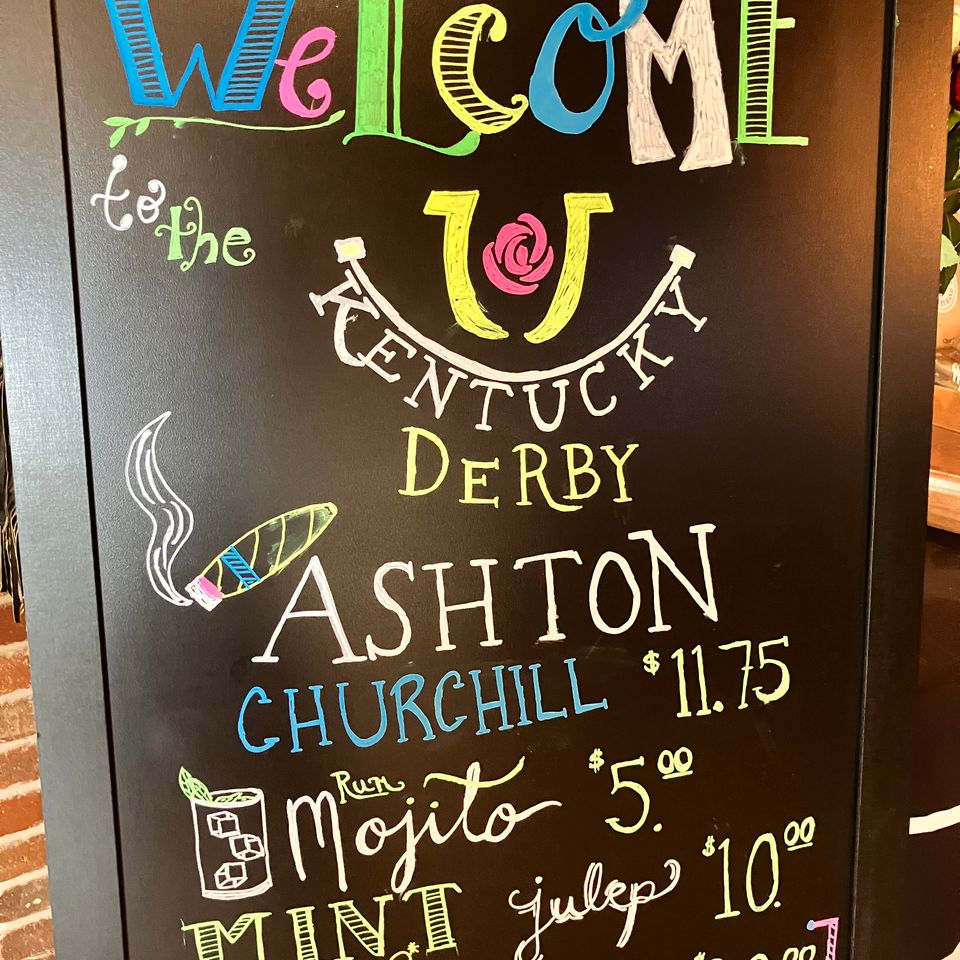 WeLcoME
to the
KENTUCKY
DERBY
ASHTON
CHURCHILL $11.75
Rum Mojito $5.00
MINT julep $10.00